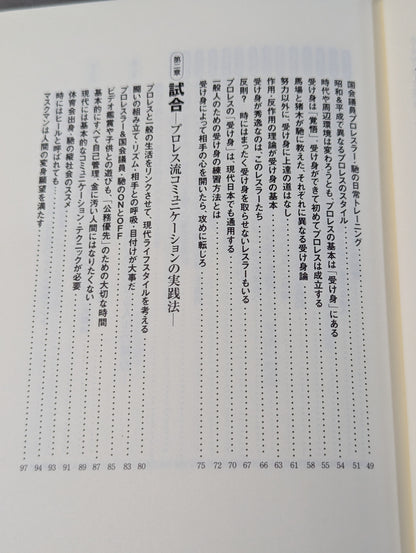 国会議員プロレスラー・馳の日常トレーニング………49
昭和＆平成で異なるプロレスのスタイル………51
時代や周辺環境は変わろうとも、プロレスの基本は「受け身」にある………54
受け身は〝覚悟〟。受け身ができて初めてプロレスは成立する………55
馬場と猪木が馳に教えた、それぞれに異なる受け身論………58
努力以外に、受け身に上達の道はなし………61
作用・反作用の理論が受け身の基本………63
受け身が秀逸なのは、このレスラーたち………66
反則？　時にはまったく受け身を取らせないレスラーもいる………67
プロレスの「受け身」は、現代日本でも通用する………70
一般人のための受け身の練習方法とは………72
受け身によって相手の心を開いたら、攻めに転じろ………75
第二章
試合
―プロレス流コミュニケーションの実践法―
プロレスと一般の生活をリンクさせて、現代ライフスタイルを考える………80
闘いの組み立て・リズム・相手との呼吸・目付けが大事だ………83
プロレスラー＆国会議員、馳のONとOFF………85
ビデオ鑑賞や子供との遊びも、「公務優先」のための大切な時間………87
基本的にすべて自己管理、金に汚い人間にはなりたくない………89
現代には基本的なコミュニケーション・テクニックが必要………91
体育会出身・馳の縦社会のススメ………93
時にはヒールと呼ばれても………94
マスクマンは人間の変身願望を満たす………97